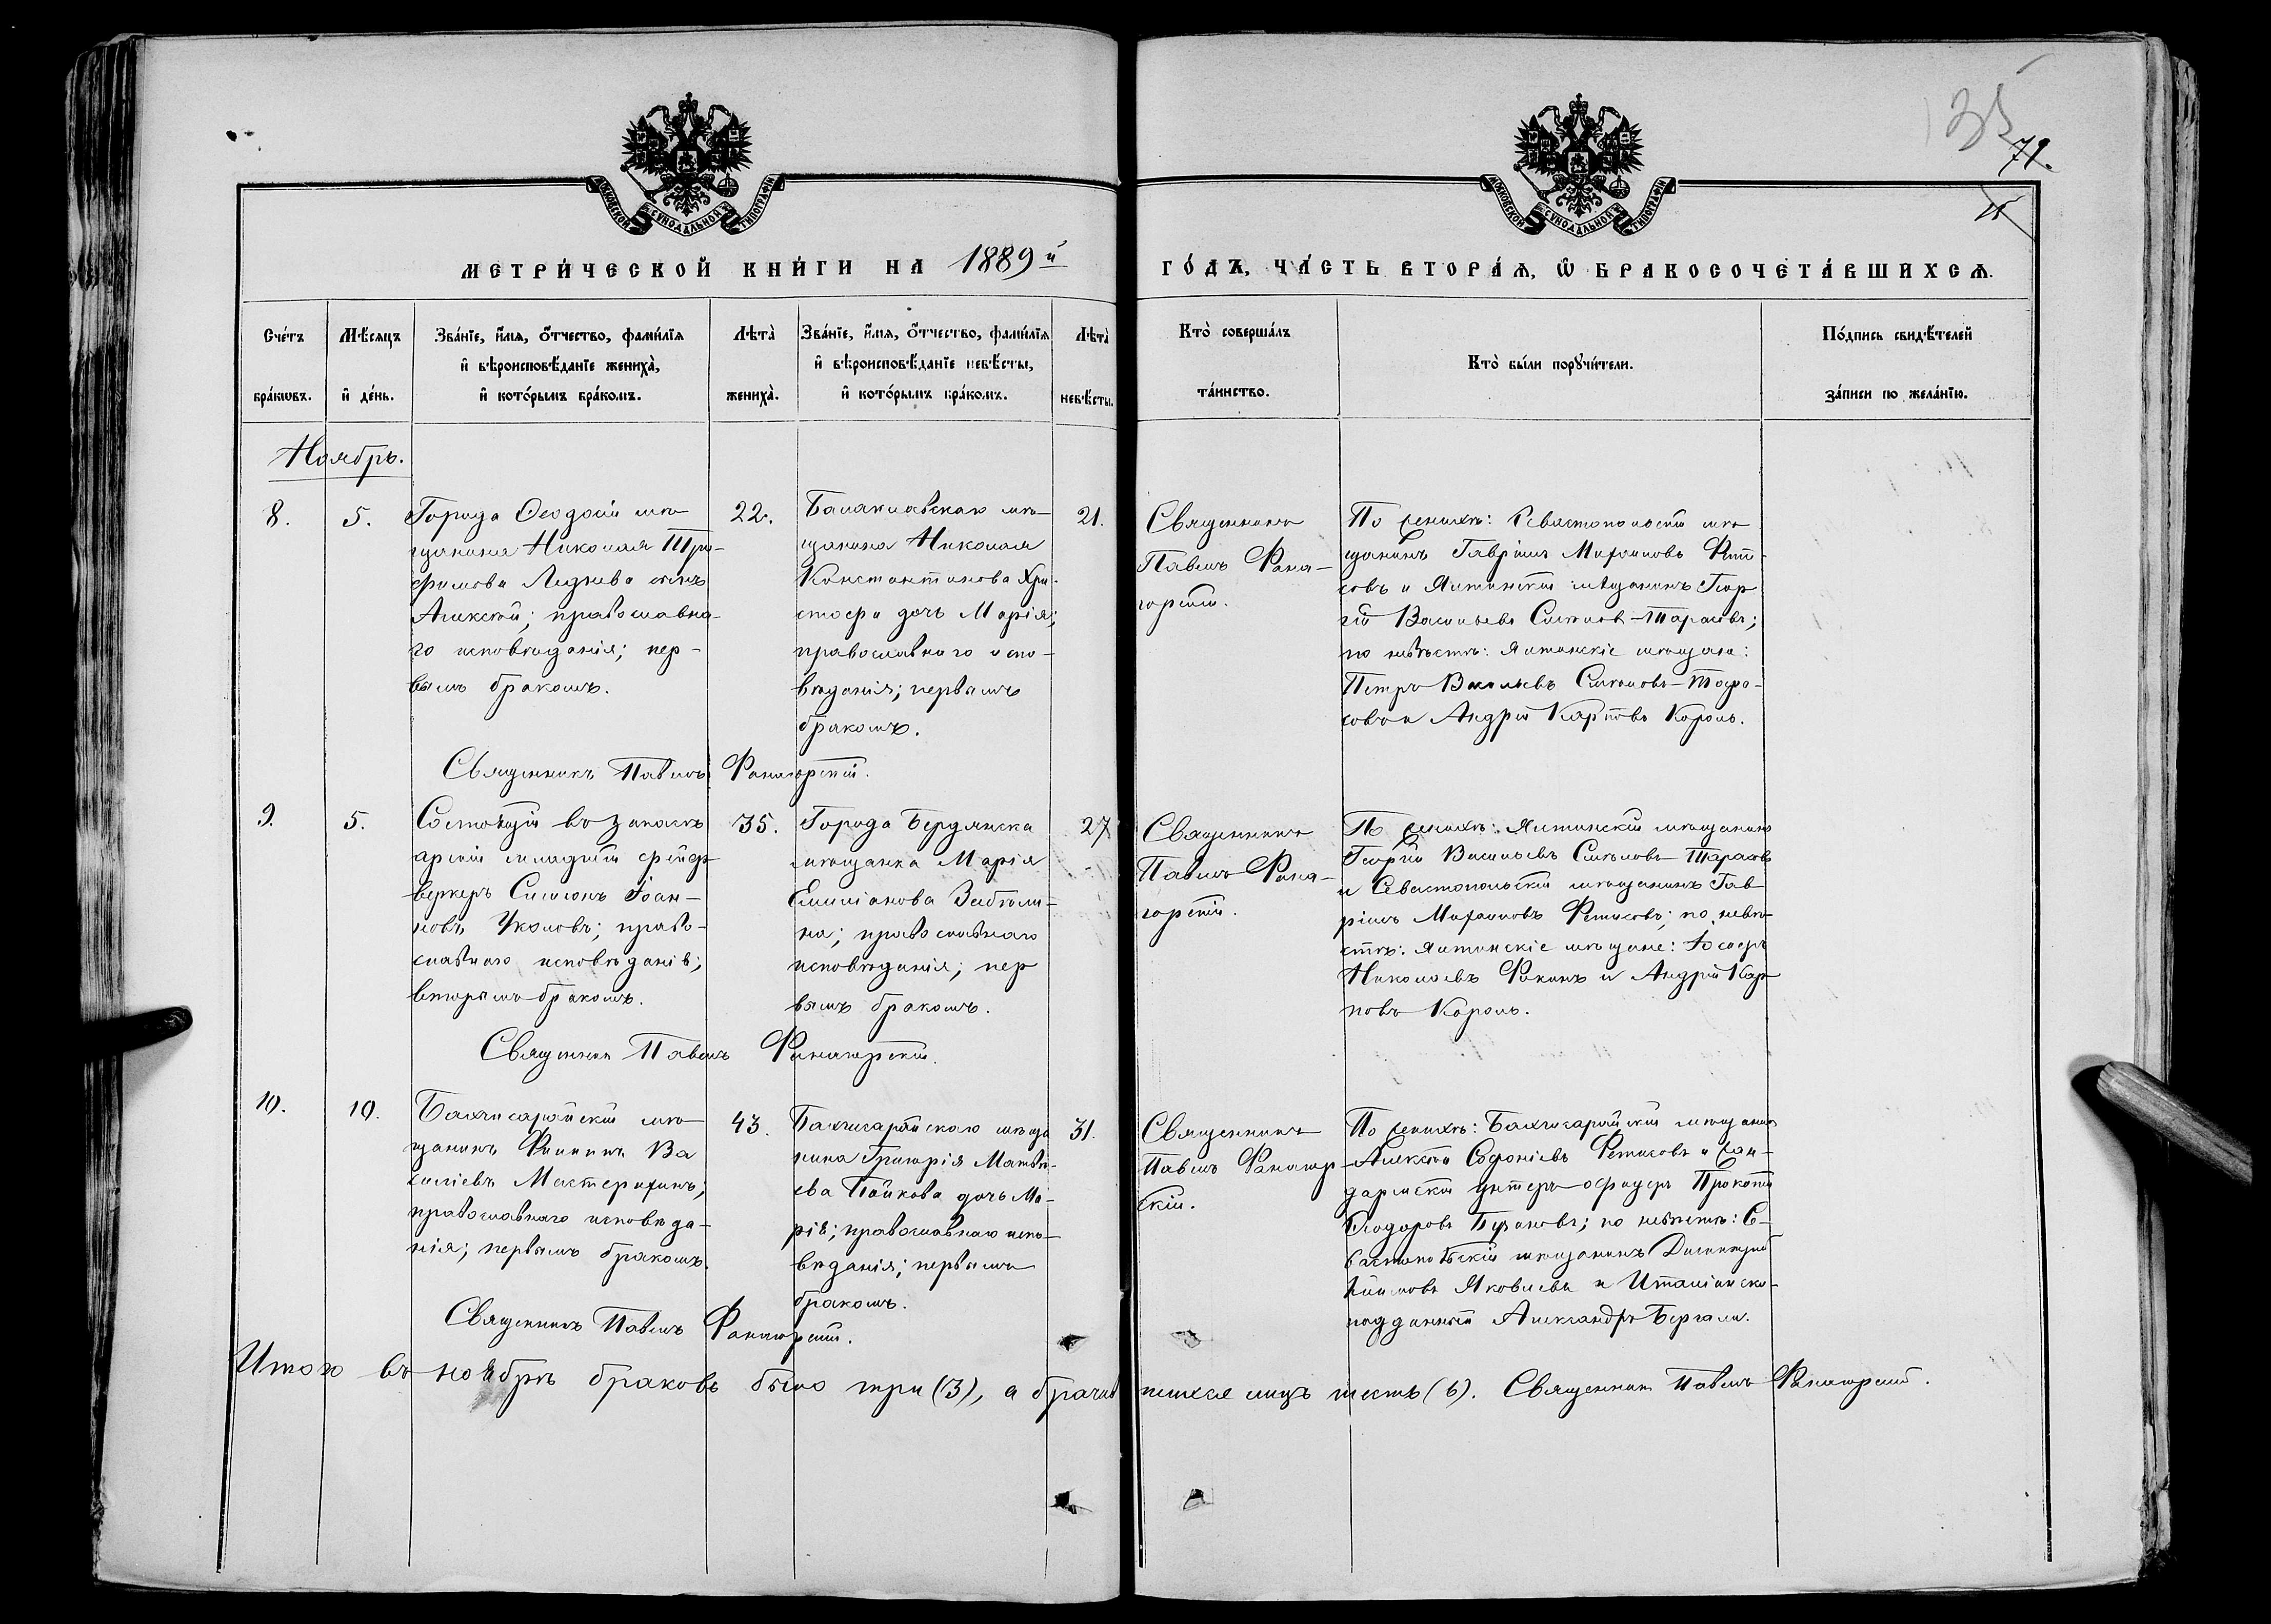 135
71.
МОСКОВСКОЙ СѴНОДАЛЬНОЙ ТИПОГРАФІИ
МОСКОВСКОЙ СѴНОДАЛЬНОЙ ТИПОГРАФІИ
МЕТРИ́ЧЕСКОЙ КНИ́ГИ НА 1889й
ГО́ДЪ, ЧА́СТЬ ВТОРА́Ѧ, Ѡ БРАКОСОЧЕТА́ВШИХСѦ.
Сче́тъ бра́кѡвъ.
Мѣ́сяцъ и҆ де́нь.
Зва́нїе, и҆́мя, о҆́тчество, фами́лїя
и҆ вѣроисповѣ́данїе жениха̀,
и҆ кото́рымъ бра́комъ.
Лѣта̀ жениха̀.
Зва́нїе, и҆́мя, о҆́тчество, фами́лїя
и҆ вѣроисповѣ́данїе невѣ́сты,
и҆ кото́рымъ бра́комъ.
Лѣта̀ невѣ́сты.
Кто̀ соверша́лъ
та́инство.
Кто̀ бы́ли порꙋчи́тели.
По́дпись свидѣ́телей
за́писи по жела́нїю.
Ноябрь.
8.
5.
Города Ѳеодосіи мѣ-
щанина Николая Три-
фимова сынъ
Алексѣй; православна-
го исповѣданія; пер-
вымъ бракомъ.
22.
Балаклавскаго мѣ-
щанина Николая
Константинова Хри-
стофи дочь Марія;
православнаго испо-
вѣданія; первымъ
бракомъ.
21.
Священникъ
Павелъ Фана-
горскій.
По женихѣ: Севастопольскій мѣ
щанинъ Гавріилъ Михаиловъ Фети-
совъ и Ялтинскій мѣщанинъ Геор
гій Васильевъ Смѣловъ-Тарасовъ;
по невѣстѣ: Ялтинскіе мѣщане:
Петръ Васильевъ Смѣловъ-Тара-
совъ и Андрей Карповъ Король.
Священникъ Павелъ Фанагорскій.
9.
5.
Состоящій въ запасѣ
арміи младшій фейер
веркеръ Симеонъ Іоан-
новъ Уколовъ; право-
славнаго исповѣданія;
вторымъ бракомъ.
35.
Города Бердянска
мѣщанка Марія
Емиліанова
православнаго
исповѣданія; пер
вымъ бракомъ.
27
Священникъ
Павелъ Фана-
горскій.
По женихѣ: Ялтинскій мѣщанинъ
Георгій Васильевъ Смѣловъ-Тарасовъ
и Севастопольскій мѣщанинъ Гав
ріилъ Михаиловъ Фетисовъ; по невѣ-
стѣ: ялтинскіе мѣщане: Іосифъ
Николаевъ Фокинъ и Андрей Кар
повъ Король.
Священникъ Павелъ Фанагорскій.
10.
10.
Бахчисарайскій мѣ
щанинъ Филиппъ Ва
силіевъ Мастерихинъ;
православнаго исповѣда-
нія; первымъ бракомъ.
43.
Бахчисарайскаго мѣща
нина Григорія Матвѣ-
ева Пойкова дочь Ма-
рія; православнаго испо-
вѣданія; первымъ
бракомъ.
31.
Священникъ
Павелъ Фанагор-
скій.
По женихѣ: Бахчисарайскій мѣщанинъ
Алексѣй Софоніевъ Фетисовъ и жан-
дармскій унтеръ-офицеръ Прокопій
Ѳеодоровъ по невѣстѣ: Се-
вастопольскій мѣщанинъ Димитрій
Яковлевъ и Италіанско-
подданный Александръ Бергали.
Священникъ Павелъ Фанагорскій.
Итого въ ноябрѣ браковъ было три (3), а брачив
шихся лицъ шесть (6). Священникъ Павелъ Фанагорскій.